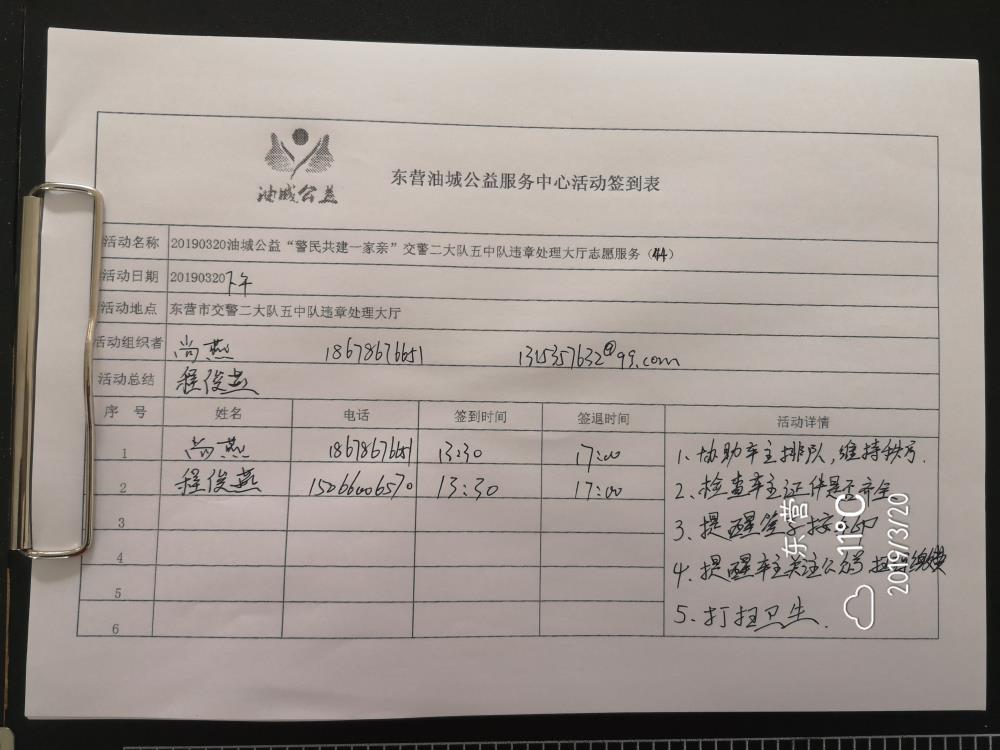 油城公益
东营油城公益服务中心活动签到表
活动名称 20190320油城公益“警民共建一家亲”交警二大队五中队违章处理大厅志愿服务（44）
活动日期 20190320下午
活动地点 东营市交警二大队五中队违章处理大厅
活动组织者 尚燕 18678676651 1315357632@qq.com
活动总结 程俊燕
序号 姓名 电话 签到时间 签退时间 活动详情
1 尚燕 18678676651 13:30 17:00
2 程俊燕 15066006570 13:30 17:00
3
4
5
6
1、协助车主排队，维持秩序.
2、检查车主证件是否齐全
3、提醒签字按手印
4、提醒车主关注公众号
5、打扫卫生.
东营 11°C
2019/3/20